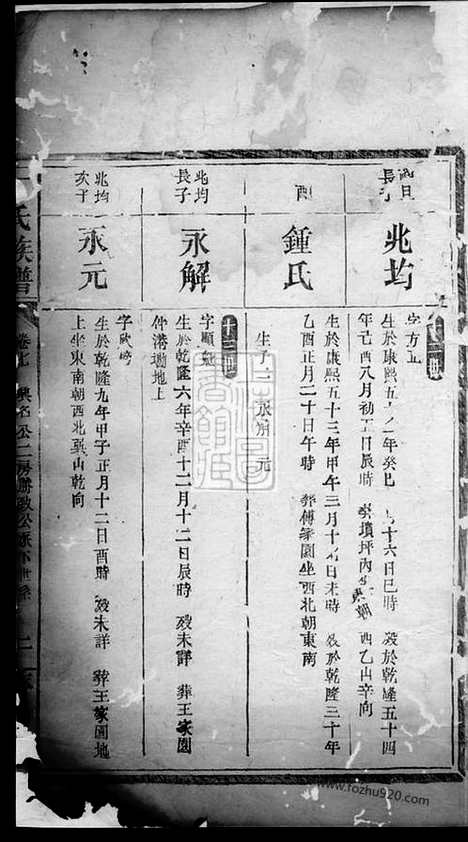 長子
兆均
字方
生於康熙五十二年癸巳 月十六日巳時 歿於乾隆五十四
年己酉八月初 日辰時 葬墳坪內 東朝西乙山辛向
配
鍾氏
生於康熙五十三年甲午三月十 日未時 歿於乾隆三十年
乙酉正月二十日午時 葬傅家園坐西北朝東南
生子 永解 元
十三世
兆均
長子
永解
字順
生於乾隆六年辛酉十二月十二日辰時 歿未詳 葬王家園
仲港塝地上
兆均
次子
永元
字欣
生於乾隆九年甲子正月十二日酉時 歿未詳 葬王家園地
上坐東南朝西北巽山乾向
氏族譜
卷七
二
www.fozhu920.com